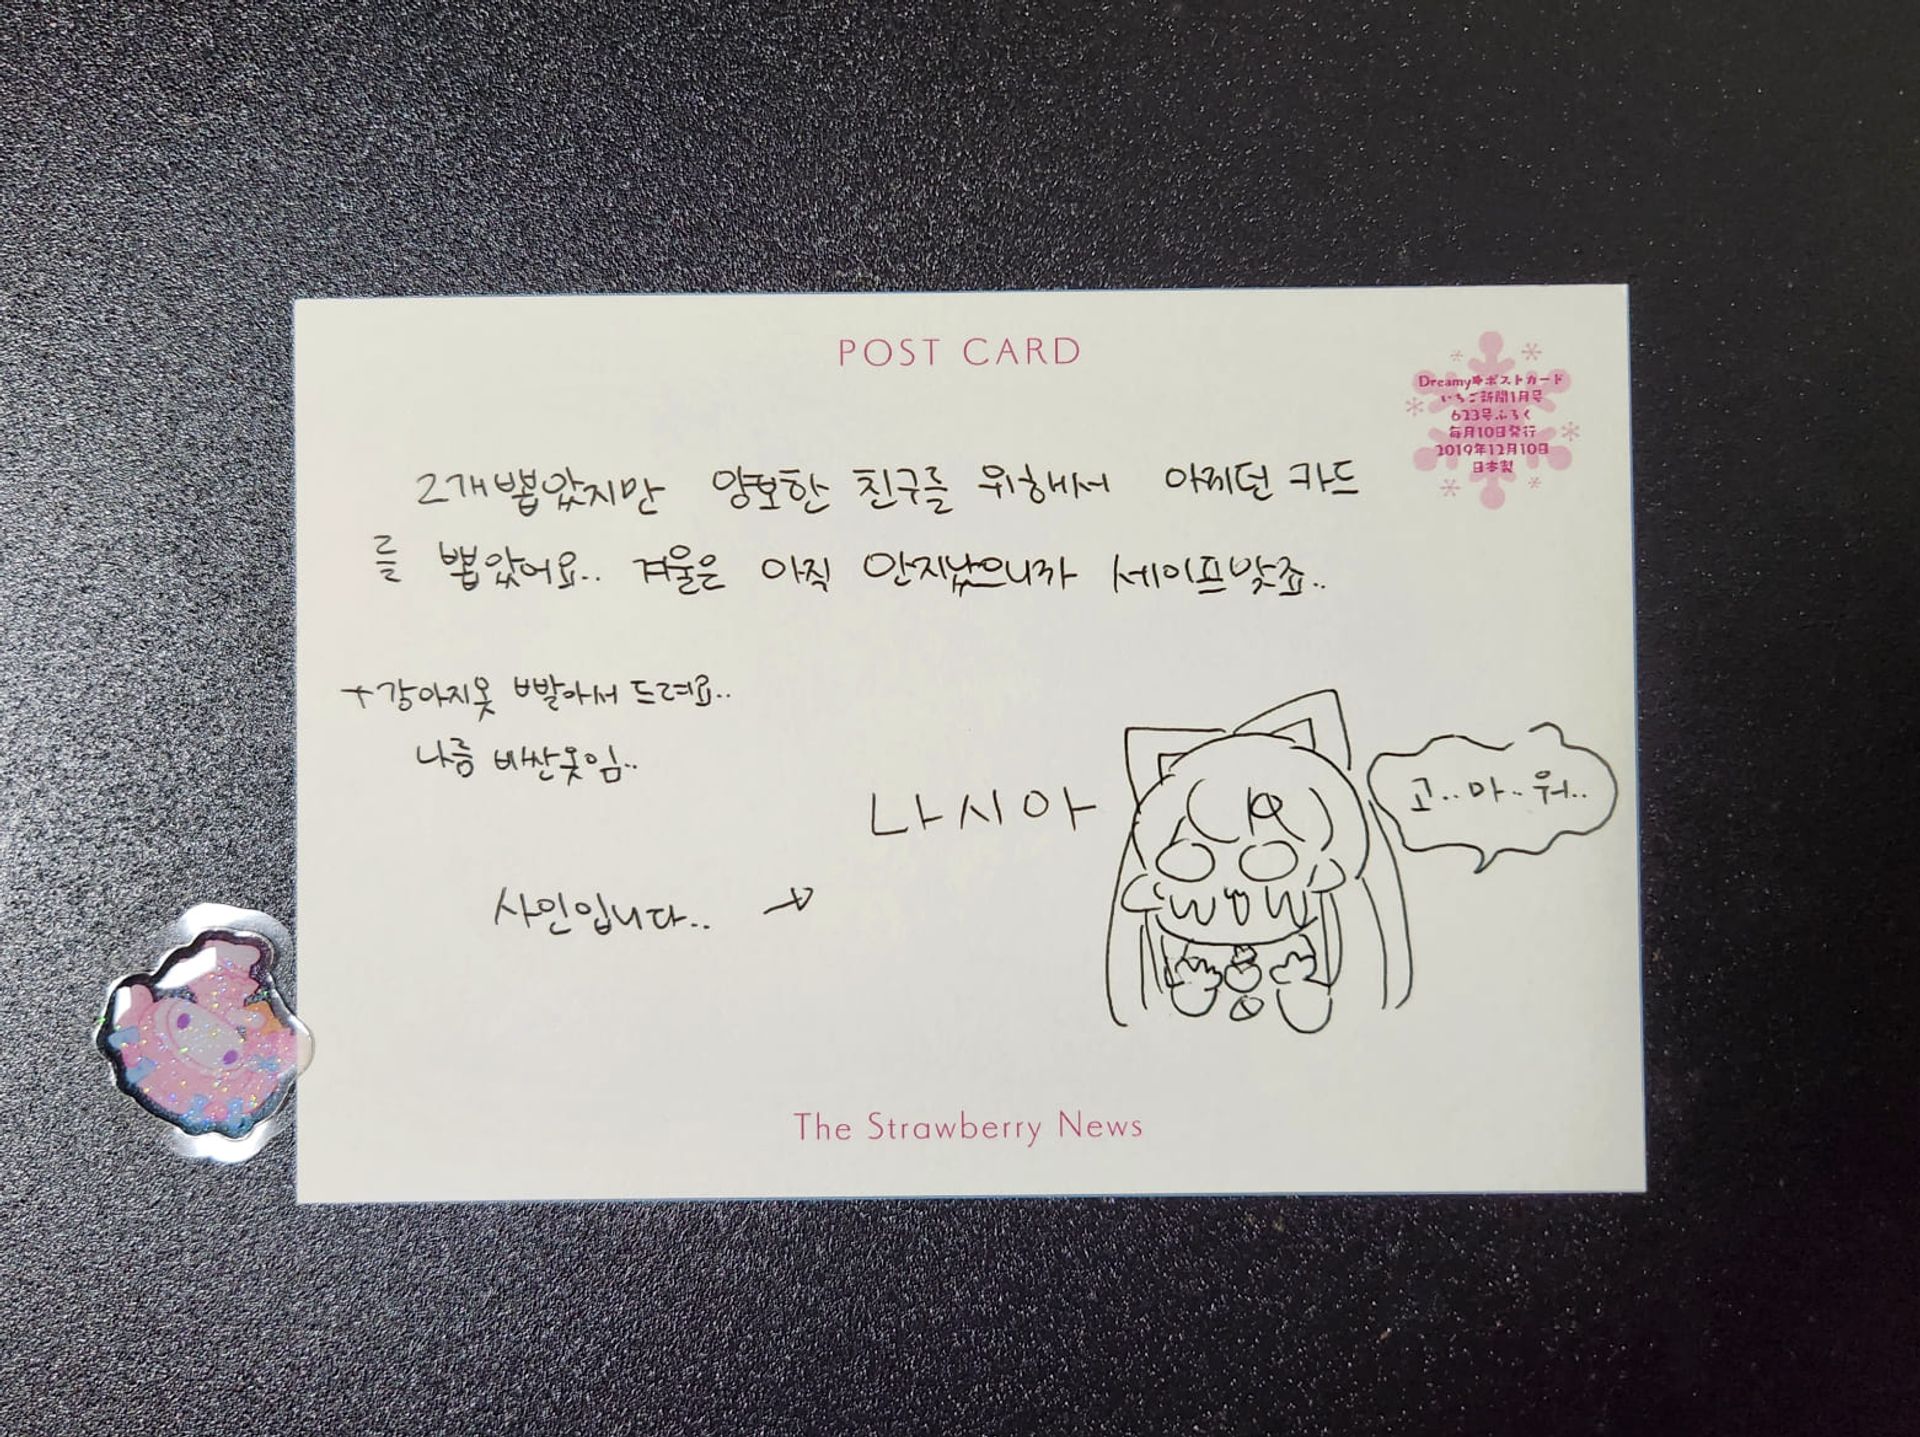 POST CARD
Dreamy❄ポストカード
いちご新聞1月号
623号ふろく
毎月10日発行
2019年12月10日
日本製
2개뽑았지만 양보한 친구를 위해서 아끼던 카드
를 뽑았어요.. 겨울은 아직 안지났으니까 세이프맞죠..
+강아지옷 빨아서 드려요..
나름 비싼옷임..
나시아
고..마..워..
사인입니다.. →
The Strawberry News